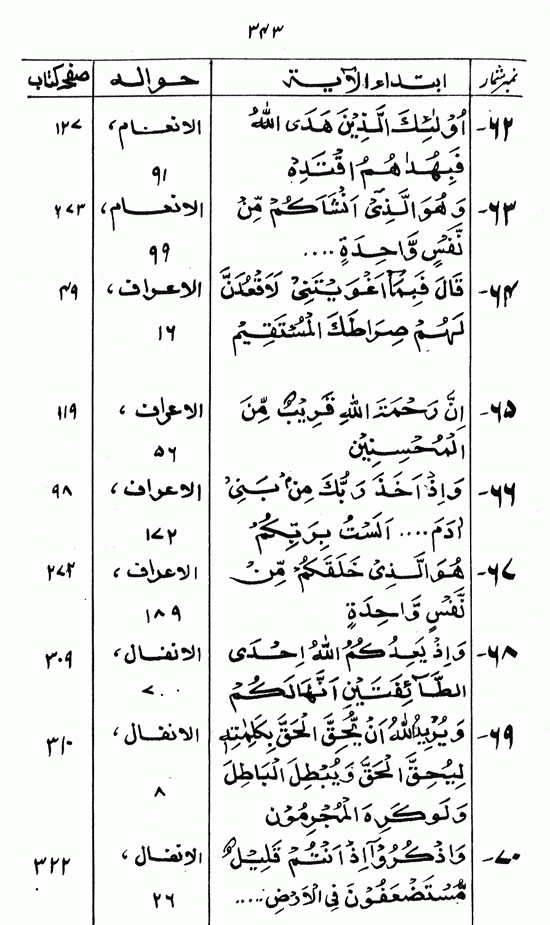 ۳۴۳
نمبر شمار ابتداء الآیة حواله صفحہ کتاب
۶۲- اُولٰٓئِكَ الَّذِیْنَ هَدَی اللّٰهُ الانعام، ۱۲۷
فَبِهُدٰىهُمُ اقْتَدِهْ ۹۱
۶۳- وَهُوَ الَّذِیْٓ اَنْشَاَكُمْ مِّنْ الانعام، ۲۷۳
نَّفْسٍ وَّاحِدَةٍ .... ۹۹
۶۴- قَالَ فَبِمَآ اَغْوَیْتَنِیْ لَاَقْعُدَنَّ الاعراف، ۴۹
لَهُمْ صِرَاطَكَ الْمُسْتَقِیْمَ ۱۶
۶۵- اِنَّ رَحْمَتَ اللّٰهِ قَرِیْبٌ مِّنَ الاعراف، ۱۱۹
الْمُحْسِنِیْنَ ۵۶
۶۶- وَاِذْ اَخَذَ رَبُّكَ مِنْۢ بَنِیْٓ الاعراف، ۹۸
اٰدَمَ .... اَلَسْتُ بِرَبِّكُمْ ۱۷۲
۶۷- هُوَ الَّذِیْ خَلَقَكُمْ مِّنْ الاعراف، ۲۷۲
نَّفْسٍ وَّاحِدَةٍ ۱۸۹
۶۸- وَاِذْ یَعِدُكُمُ اللّٰهُ اِحْدَی الانفال، ۳۰۹
الطَّآئِفَتَیْنِ اَنَّهَا لَكُمْ ۷..
۶۹- وَیُرِیْدُ اللّٰهُ اَنْ یُّحِقَّ الْحَقَّ بِكَلِمٰتِهٖ الانفال، ۳۱۰
لِیُحِقَّ الْحَقَّ وَیُبْطِلَ الْبَاطِلَ ۸
وَلَوْ كَرِهَ الْمُجْرِمُوْنَ
۷۰- وَاذْكُرُوْٓا اِذْ اَنْتُمْ قَلِیْلٌ الانفال، ۳۲۲
مُّسْتَضْعَفُوْنَ فِی الْاَرْضِ ..... ۲۶